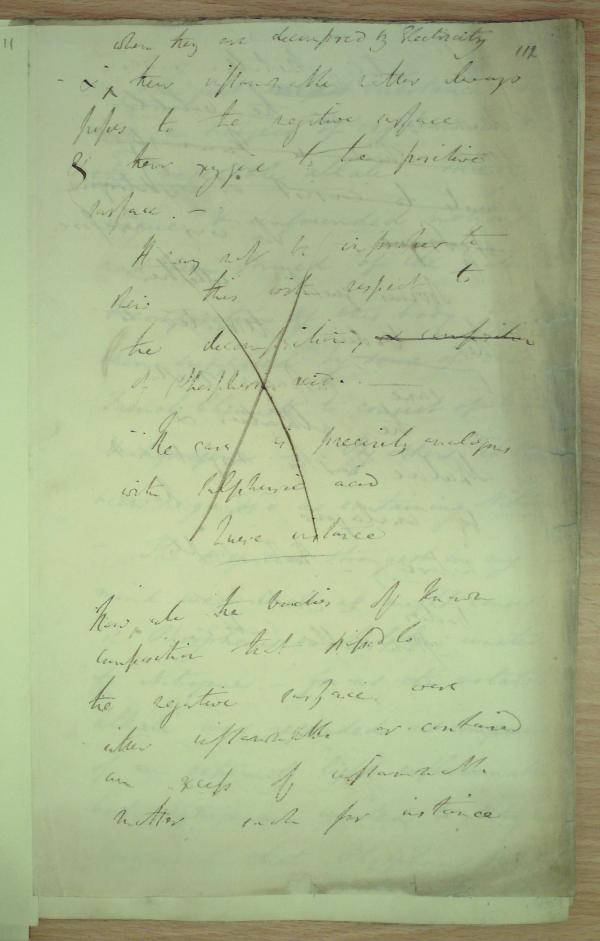 112
when they are decomposed by Electricity
& their inflammable matter always
passes to the negative surface
& their oxygene to the positive
surface. —
It may not be improper to
view this with respect to
the decomposition & composition
of Phosphoric acid. —
The case is precisely analogous
with Sulphuric acid
instance
Now all the bodies of known
composition that passed to
the negative surface were
either inflammable or contained
an excess of inflammable
matter such for instance